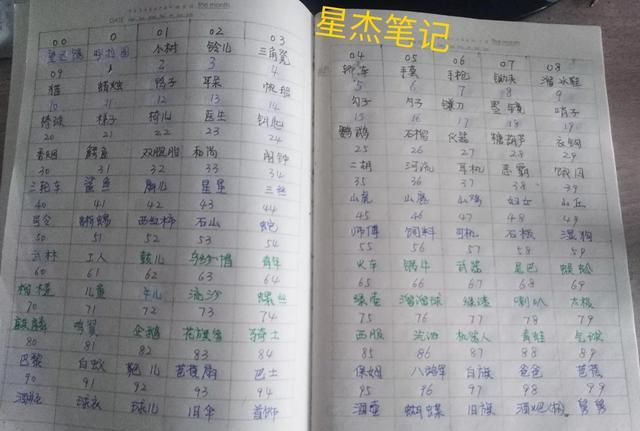 星杰笔记
DATE
00 0 01 02 03
望远镜 呼拉圈 小树 铃儿 三角凳
09 1 2 3 4
猫 蜡烛 鸭子 耳朵 帆船
10 11 12 13 14
棒球 梯子 椅儿 医生 钥匙
20 21 22 23 24
香烟 鳄鱼 双胞胎 和尚 闹钟
30 31 32 33 34
三轮车 鲨鱼 扇儿 星星 三丝
40 41 42 43 44
司令 蜥蜴 西红柿 石山 蛇
50 51 52 53 54
武林 工人 鼓儿 乌纱帽 青年
60 61 62 63 64
榴梿 儿童 牛儿 流沙 螺丝
70 71 72 73 74
麒麟 鸡翼 企鹅 花旗参 骑士
80 81 82 83 84
巴黎 白蚁 靶儿 芭蕉扇 巴士
90 91 92 93 94
酒瓶 球衣 球儿 旧伞 首饰
04 05 06 07 08
轿车 手套 手枪 锄头 溜冰鞋
5 6 7 8 9
勾子 勺子 镰刀 眼镜 哨子
15 16 17 18 19
鹦鹉 石榴 仪器 糖葫芦 衣钩
25 26 27 28 29
二胡 河流 耳机 恶霸 饿囚
35 36 37 38 39
山虎 山鹿 山鸡 妇女 山丘
45 46 47 48 49
师傅 饲料 司机 石板 湿狗
55 56 57 58 59
火车 蜗牛 武器 尾巴 蜈蚣
65 66 67 68 69
绿壶 溜溜球 绿漆 喇叭 太极
75 76 77 78 79
西服 汽油 机器人 青蛙 气球
85 86 87 88 89
保姆 八路军 白旗 爸爸 芭蕉
95 96 97 98 99
酒壶 蝴蝶 旧旗 舅舅